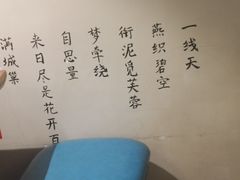 一线天
燕织碧空
衔泥觅芙蓉
梦牵绕
自思量
来日尽是花开百
满城巢